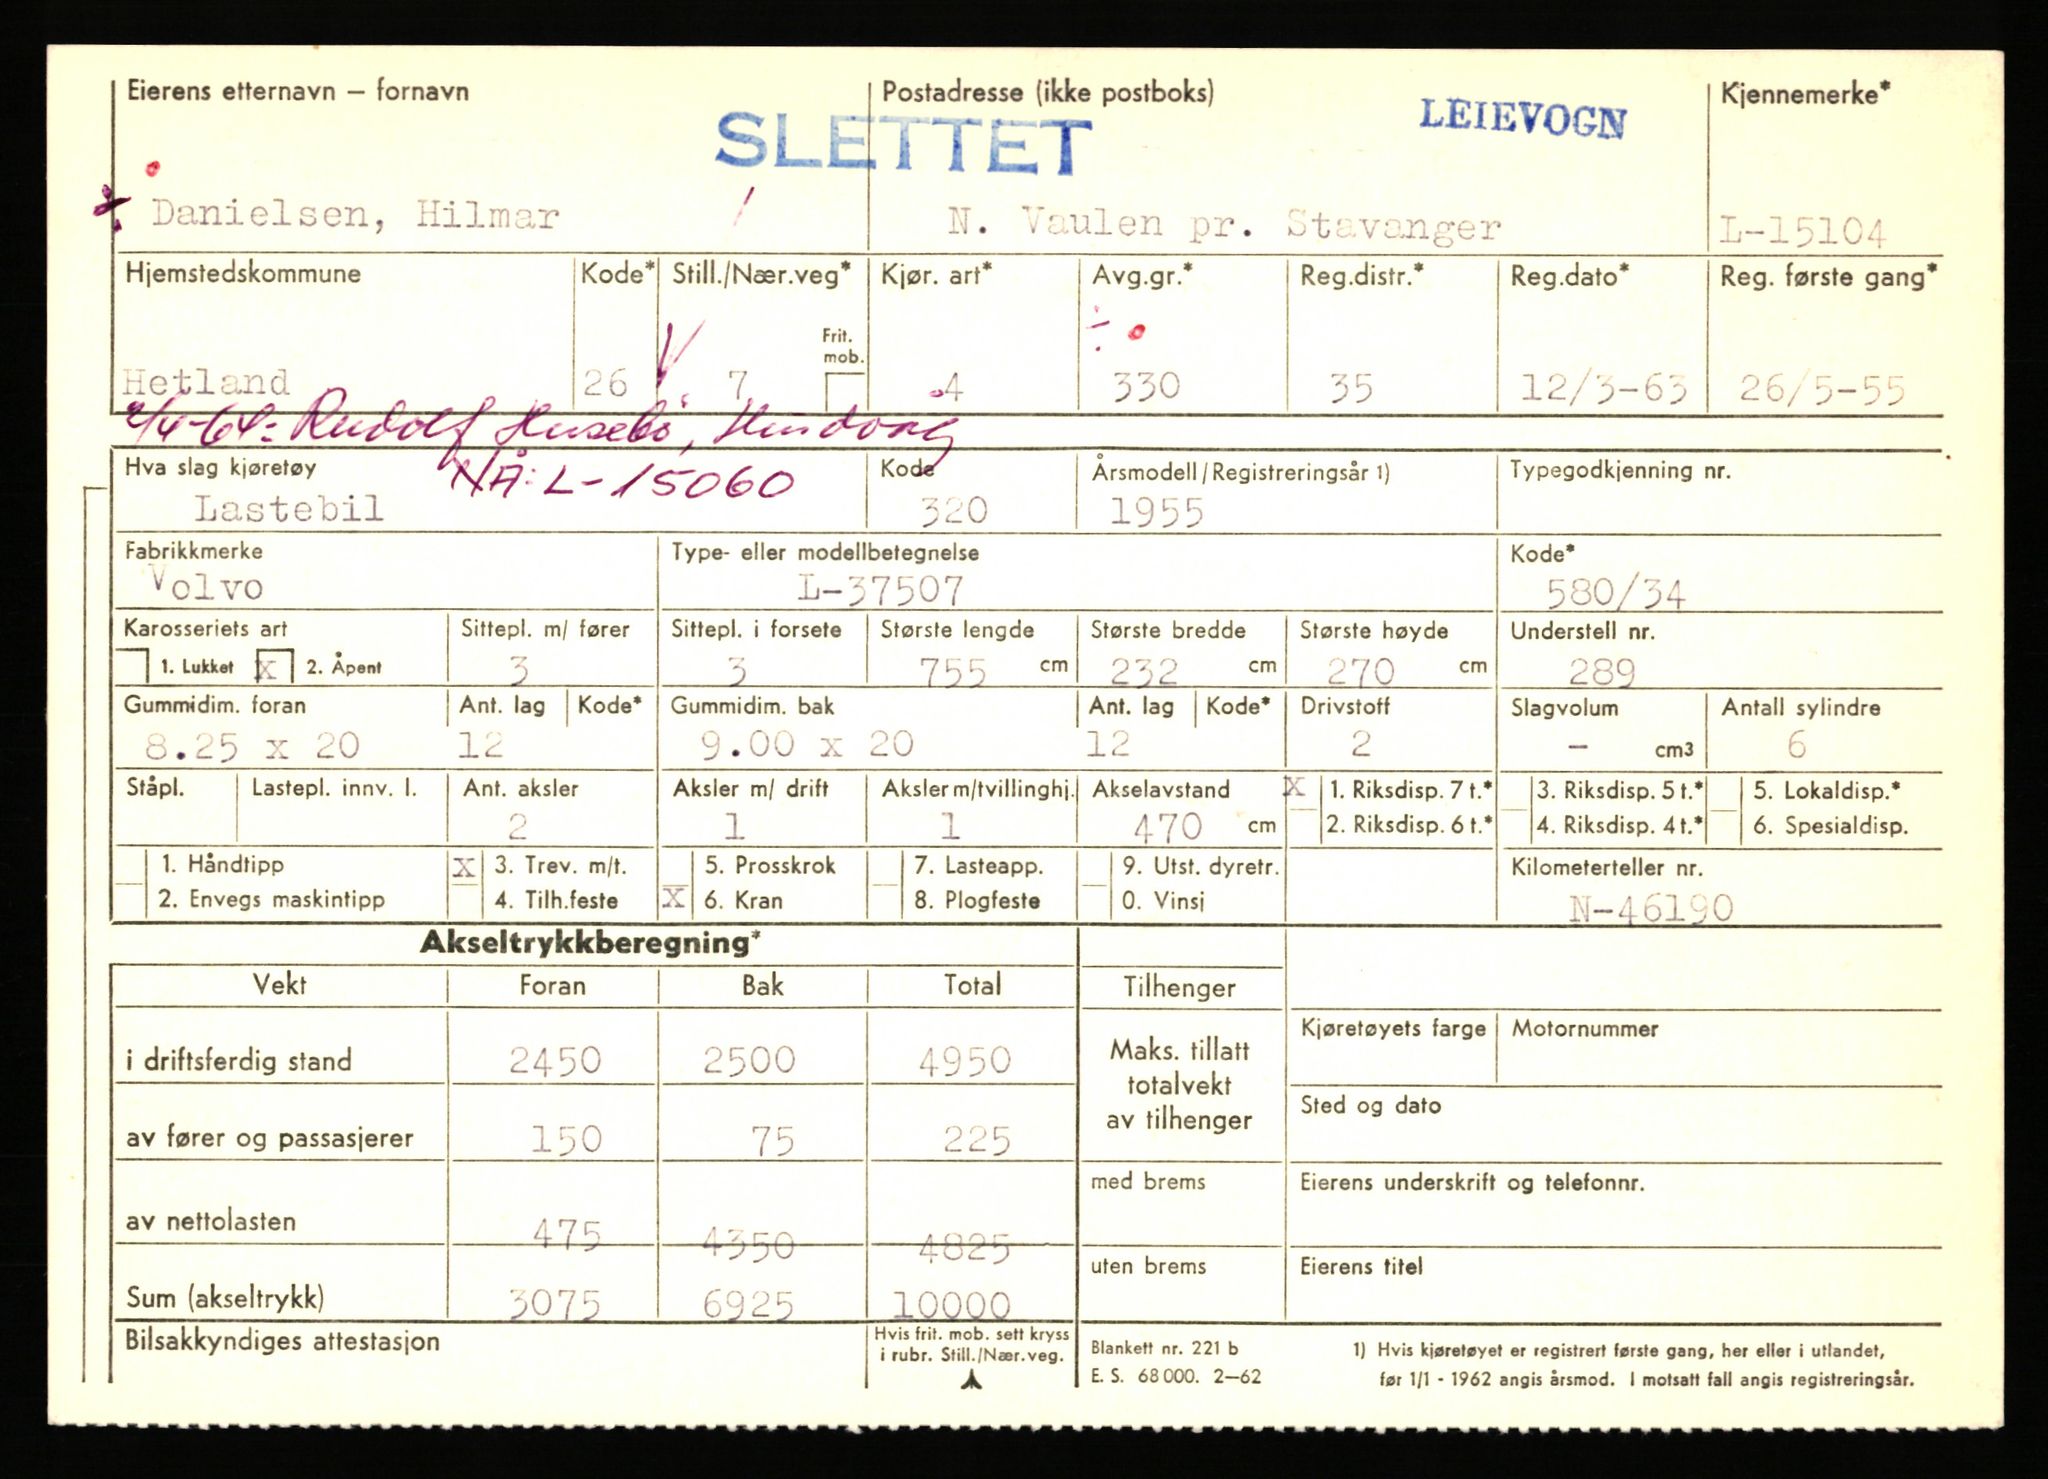 Eierens etternavn – fornavn Postadresse (ikke postboks) Kjennemerke*
SLETTET LEIEVOGN
Danielsen, Hilmar N. Vaulen pr. Stavanger L-15104
Hjemstedskommune Kode* Still./Nær.veg* Kjør. art* Avg.gr.* Reg.distr.* Reg.dato* Reg. første gang*
Frit.
mob.
Hetland 26 7 4 330 35 12/3-63 26/5-55
/4-64: Rudolf Husebö,
Hva slag kjøretøy Kode Årsmodell/Registreringsår 1) Typegodkjenning nr.
NÅ: L-15060
Lastebil 320 1955
Fabrikkmerke Type- eller modellbetegnelse Kode*
Volvo L-37507 580/34
Karosseriets art Sittepl. m/ fører Sittepl. i forsete Største lengde Største bredde Største høyde Understell nr.
1. Lukket X 2. Åpent 3 3 755 cm 232 cm 270 cm 289
Gummidim. foran Ant. lag Kode* Gummidim. bak Ant. lag Kode* Drivstoff Slagvolum Antall sylindre
8.25 x 20 12 9.00 x 20 12 2 – cm3 6
Ståpl. Lastepl. innv. l. Ant. aksler Aksler m/ drift Aksler m/tvillinghj. Akselavstand X 1. Riksdisp. 7 t.* 3. Riksdisp. 5 t.* 5. Lokaldisp.*
2 1 1 470 cm 2. Riksdisp. 6 t.* 4. Riksdisp. 4 t.* 6. Spesialdisp.
1. Håndtipp X 3. Trev. m/t. 5. Prosskrok 7. Lasteapp. 9. Utst. dyretr. Kilometerteller nr.
2. Envegs maskintipp 4. Tilh.feste X 6. Kran 8. Plogfeste 0. Vinsj N-46190
Akseltrykkberegning*
Vekt Foran Bak Total Tilhenger
Kjøretøyets farge Motornummer
i driftsferdig stand 2450 2500 4950 Maks. tillatt
totalvekt
av tilhenger
Sted og dato
av fører og passasjerer 150 75 225
med brems Eierens underskrift og telefonnr.
av nettolasten 475 4350 4825
uten brems Eierens titel
Sum (akseltrykk) 3075 6925 10000
Bilsakkyndiges attestasjon Hvis frit. mob. sett kryss
i rubr. Still./Nær.veg.
Blankett nr. 221 b
E. S. 68 000. 2–62
1) Hvis kjøretøyet er registrert første gang, her eller i utlandet,
før 1/1 - 1962 angis årsmod. I motsatt fall angis registreringsår.